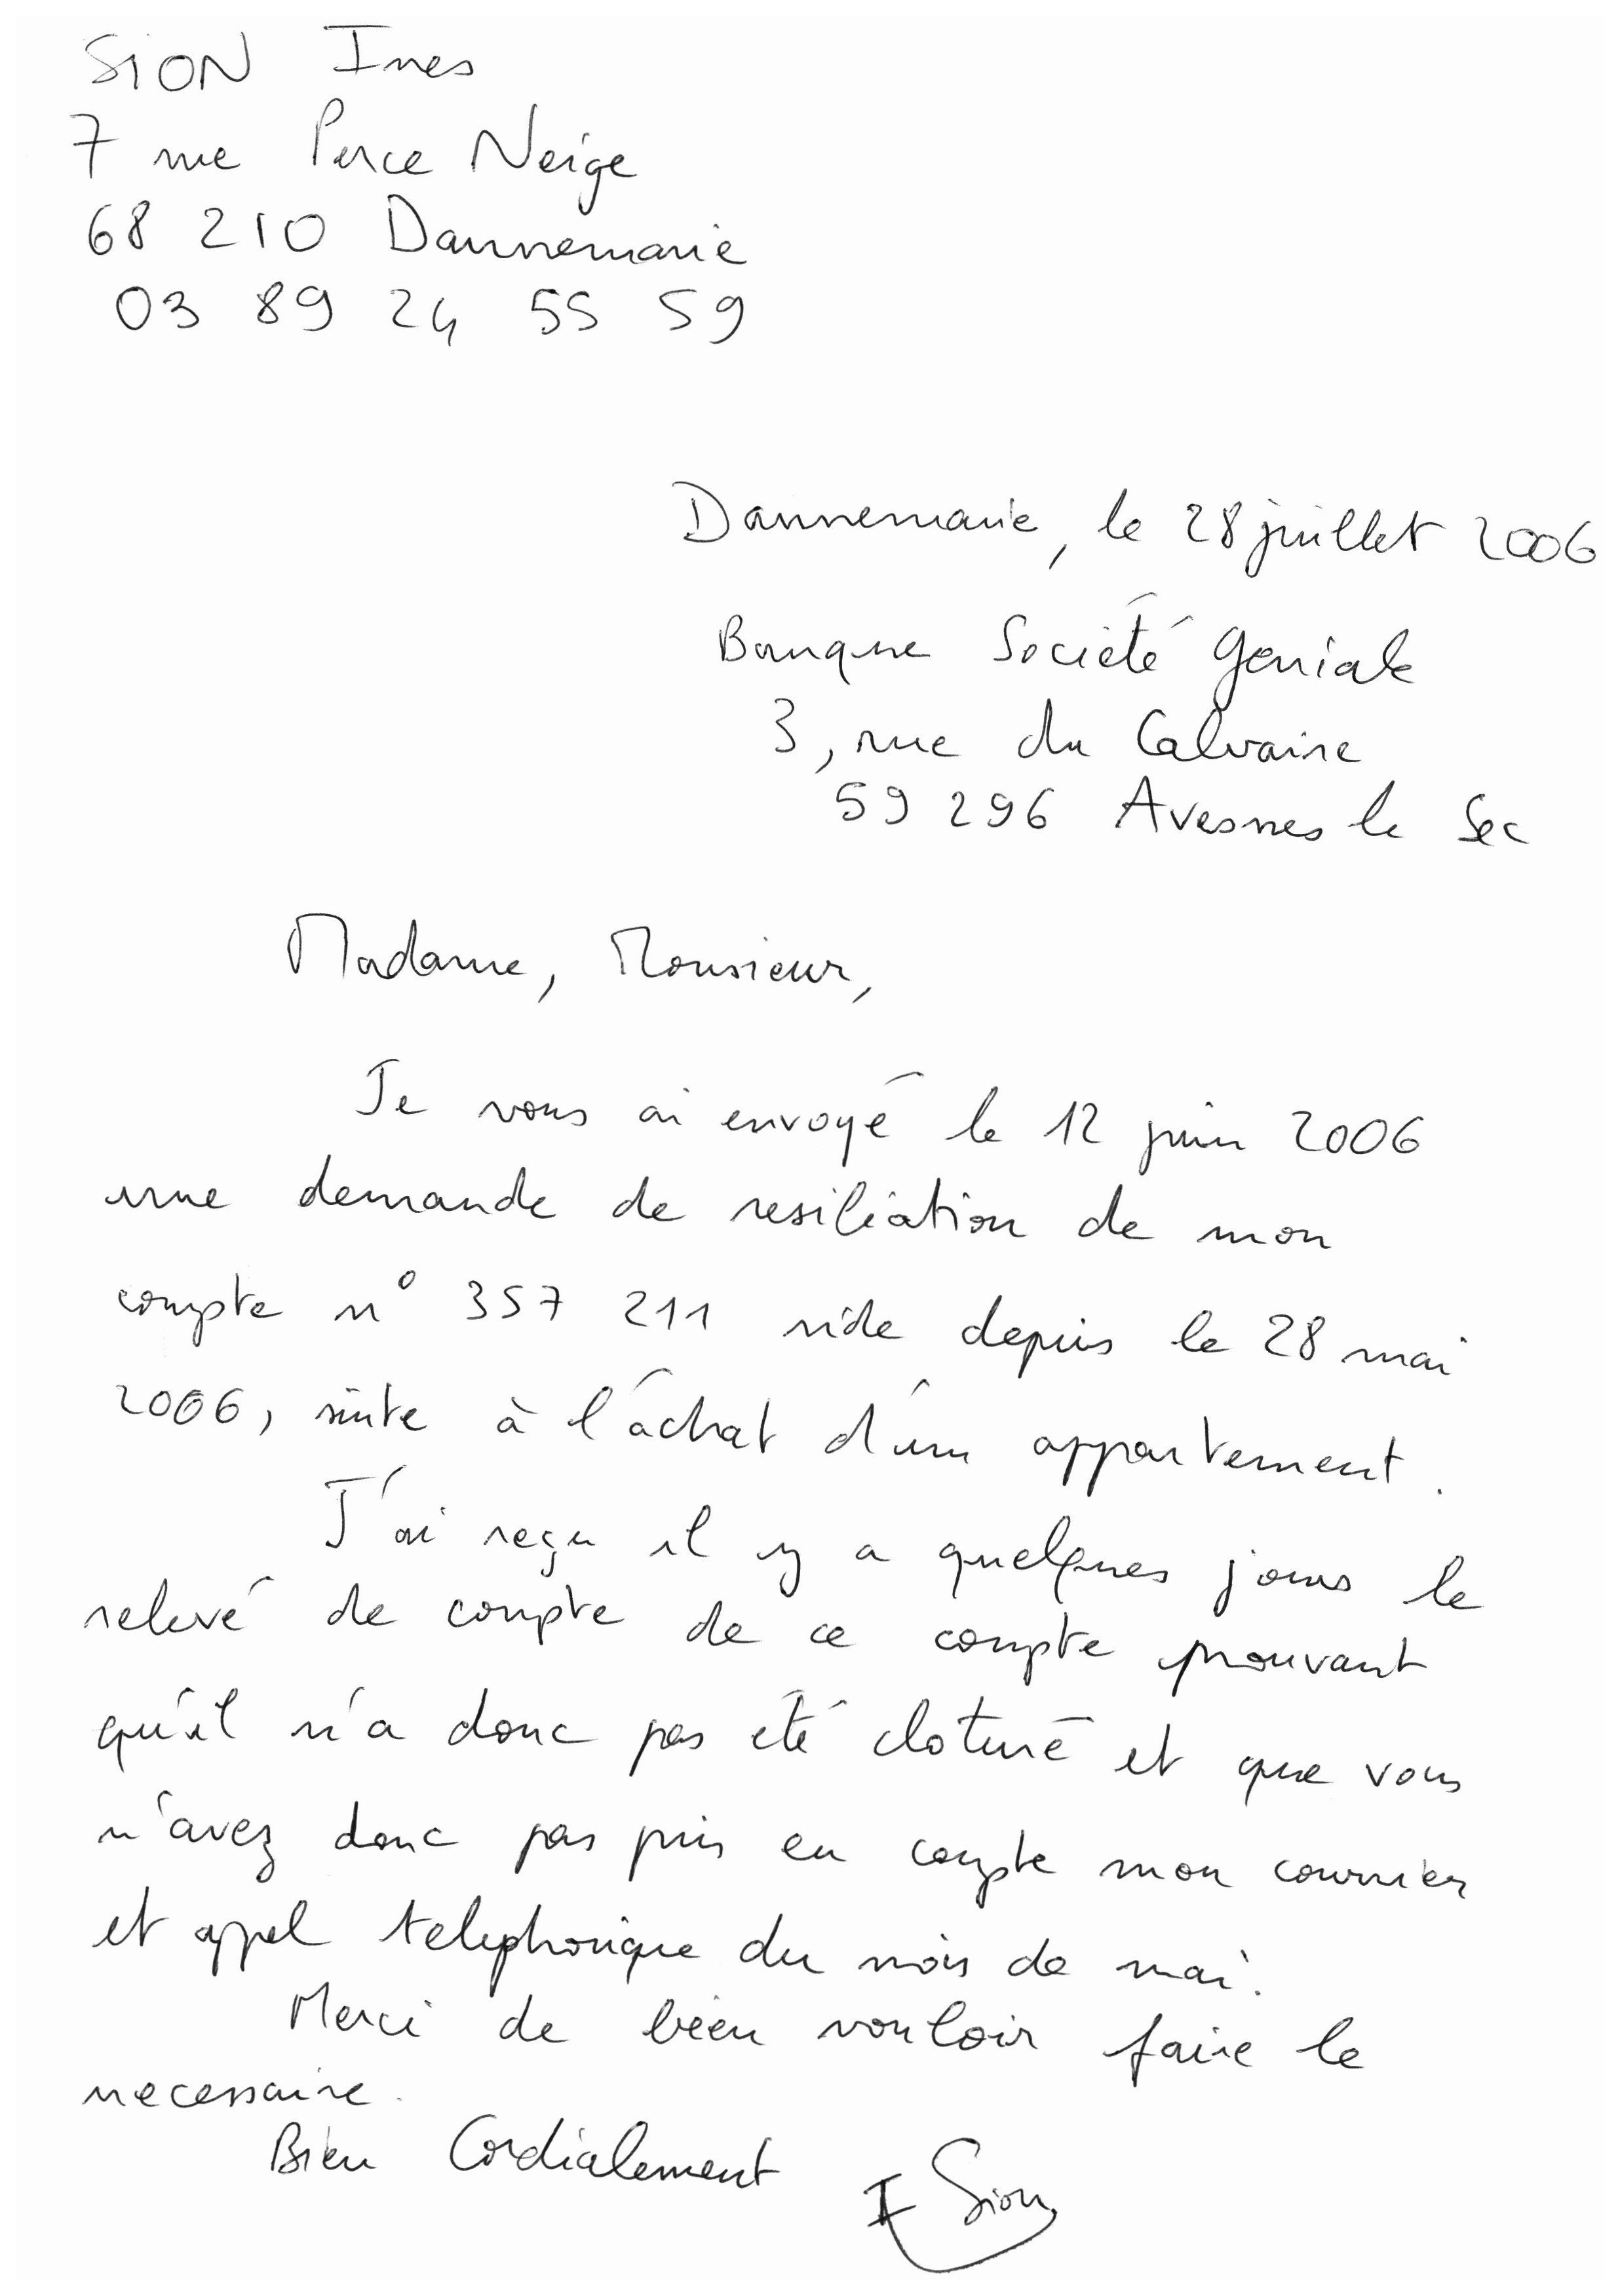 SION Ines
7 rue Perce Neige
68 210 Dannemarie
03 89 24 55 59
Dannemarie, le 28 juillet 2006
Banque Société Geniale
3, rue du Calvaire
59 296 Avesnes le Sec
Madame, Monsieur,
Je vous ai envoyé le 12 juin 2006
une demande de resiliation de mon
compte n° 357 211 vide depuis le 28 mai
2006, suite à l'achat d'un appartement.
J'ai reçu il y a quelques jours le
relevé de compte de ce compte prouvant
qu'il n'a donc pas été cloturé et que vous
n'avez donc pas pris en compte mon courrier
et appel telephonique du mois de mai.
Merci de bien vouloir faire le
necessaire.
Bien Cordialement
I Sion